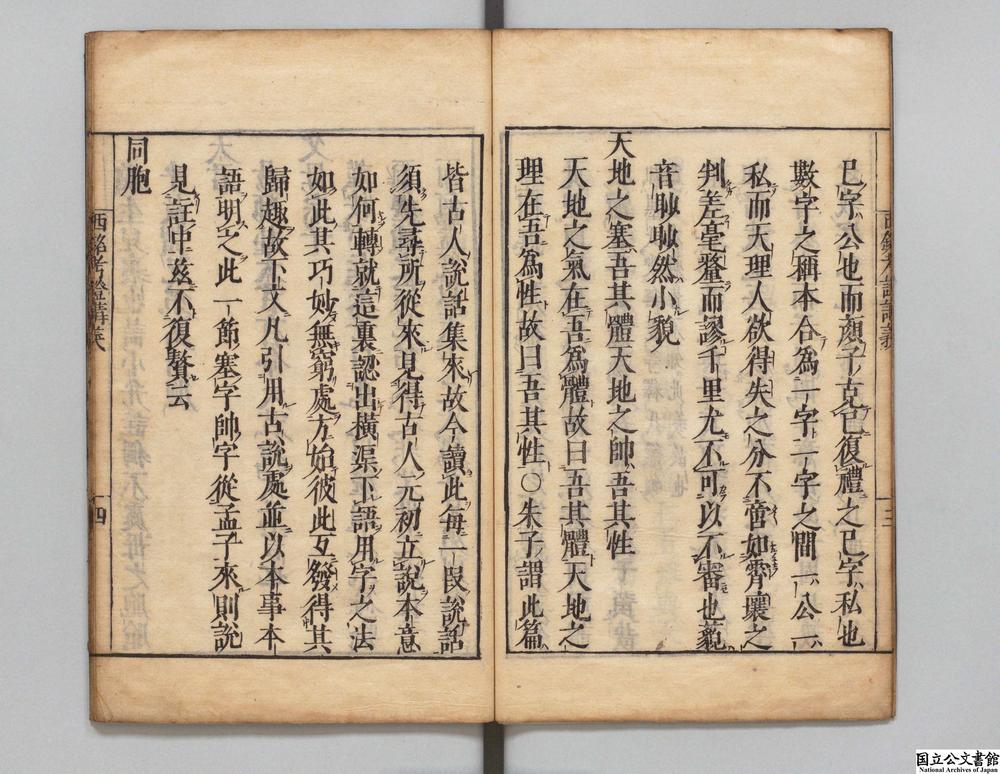 已字公也而顏子克己復禮之己字私也
數字之稱本合為一字一字之間一公一
私而天理人欲得失之分不啻如霄壤之
判差毫釐而謬千里尤不可以不審也藐
音眇眇然小貌
天地之塞吾其體天地之帥吾其性
天地之氣在吾爲體故曰吾其體天地之
理在吾爲性故曰吾其性○朱子謂此篇
皆古人說話集來故今讀此每一段說話
須先尋所從來見得古人元初立說本意
如何轉就這裏認出橫渠下語用字之法
如此其巧妙無窮處方始彼此互發得其
歸趣故下文凡引用古說處並以本事本
語明之此一節塞字帥字從孟子來則說
見註中茲不復贅云
同胞
四
国立公文書館
National Archives of Japan